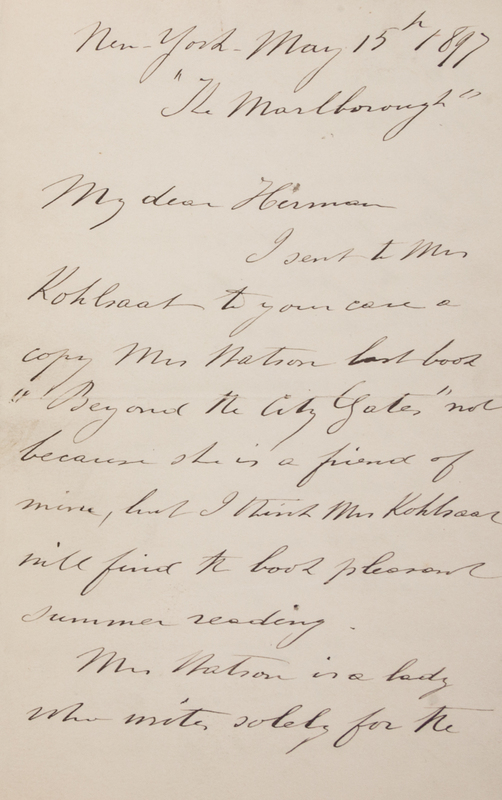 New-York-May 15th 1897
"The Marlborough"
My dear Herman
I sent to Mrs
Kohlsaat to your care a
copy Mrs Watson last book
"Beyond the City Gates" not
because she is a friend of
mine, but I think Mrs Kohlsaat
will find the book pleasant
summer reading.
Mrs Watson is a lady
who writes solely for the